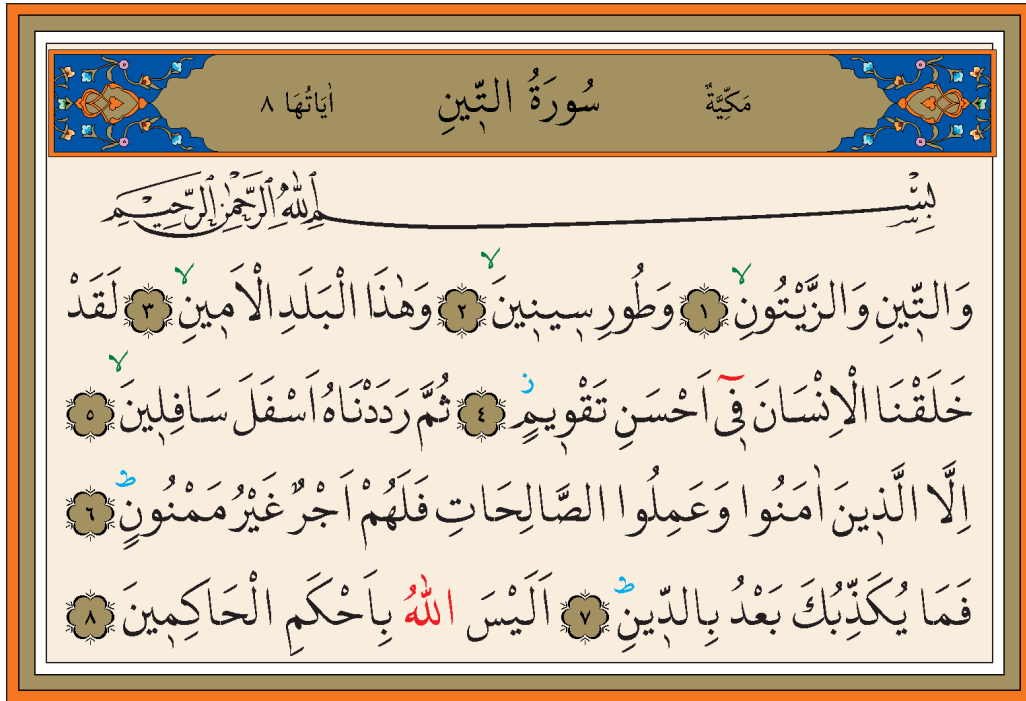 مَكِّيَّةٌ سُورَةُ التّ۪ينِ اٰيَاتُهَا ٨
بِسْمِ اللّٰهِ الرَّحْمٰنِ الرَّح۪يمِ
وَالتّ۪ينِ وَالزَّيْتُونِۙ ١ وَطُورِ س۪ين۪ينَۙ ٢ وَهٰذَا الْبَلَدِ الْاَم۪ينِۙ ٣ لَقَدْ
خَلَقْنَا الْاِنْسَانَ ف۪ٓي اَحْسَنِ تَقْو۪يمٍۘ ٤ ثُمَّ رَدَدْنَاهُ اَسْفَلَ سَافِل۪ينَۙ ٥
اِلَّا الَّذ۪ينَ اٰمَنُوا وَعَمِلُوا الصَّالِحَاتِ فَلَهُمْ اَجْرٌ غَيْرُ مَمْنُونٍۜ ٦
فَمَا يُكَذِّبُكَ بَعْدُ بِالدّ۪ينِۜ ٧ اَلَيْسَ اللّٰهُ بِاَحْكَمِ الْحَاكِم۪ينَ ٨